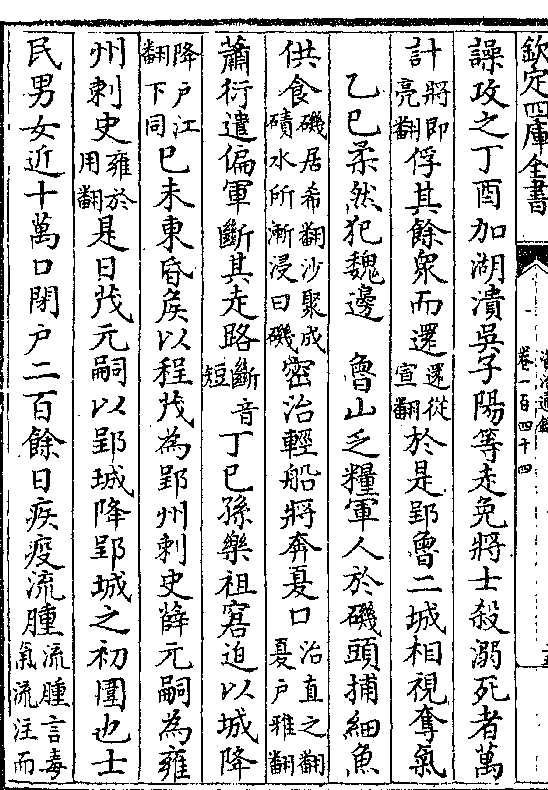 欽定四庫全書
資治通鑑
卷一百四十四
譟攻之丁酉加湖潰吳子陽等走免將士殺溺死者萬
計將即亮翻俘其餘衆而還還從宣翻於是郢魯二城相視奪氣
乙巳柔然犯魏邊 魯山乏糧軍人於磯頭捕細魚
供食磯居希翻沙聚成磧水所漸浸曰磯密治輕船將奔夏口治直之翻夏户雅翻
蕭衍遣偏軍斷其走路斷音短丁巳孫樂祖窘迫以城降
降户江翻下同巳未東昏侯以程茂為郢州刺史薛元嗣為雍
州刺史雍於用翻是日茂元嗣以郢城降郢城之初圍也士
民男女近十萬口閉户二百餘日疾疫流腫流腫言毒氣流注而